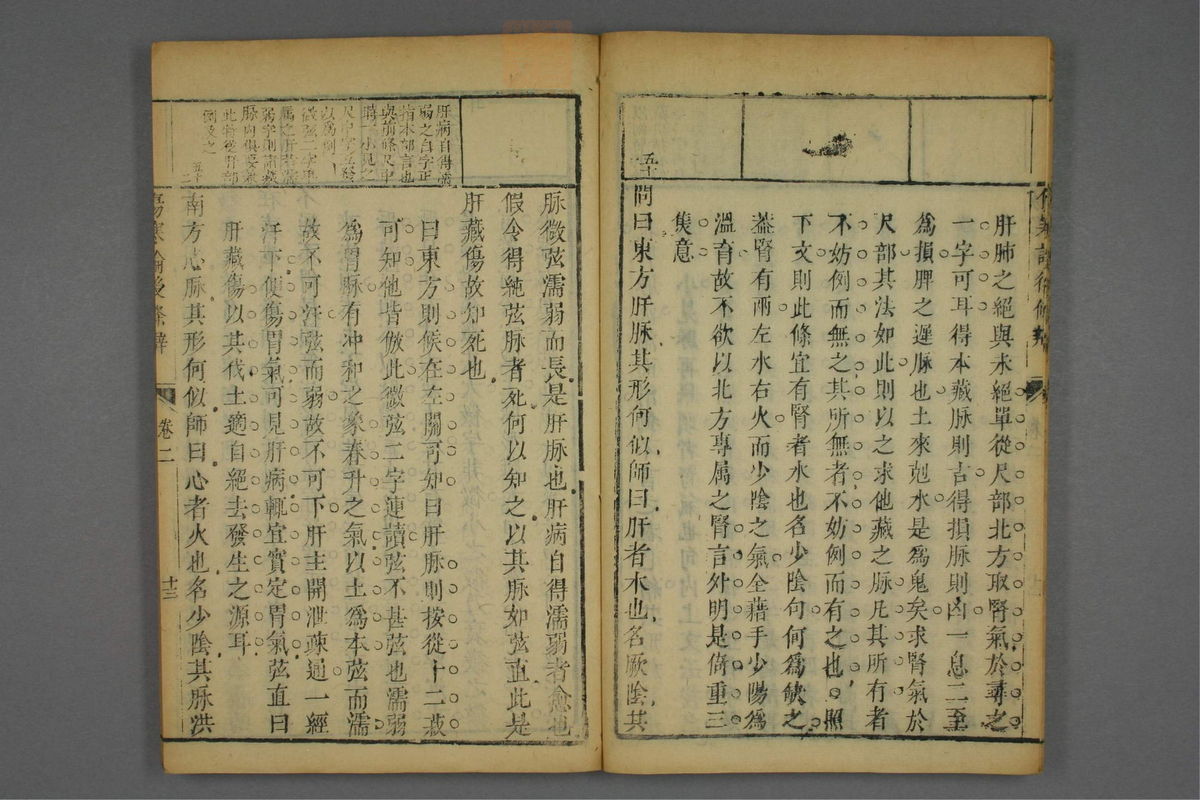 肝肺之絕與未絕單從尺部北方取腎氣於尋之
一字可耳得本藏脉則吉得損脉則凶一息二至
爲損脾之遲脉也土來剋水是爲鬼矣求腎氣於
尺部其法如此則以之求他藏之脉凡其所有者
不妨例而無之其所無者不妨例而有之也照
下文則此條宜有腎者水也名少陰句何爲缺之
蓋腎有兩左水右火而少陰之氣全藉手少陽爲
溫育故不欲以北方專属之腎言外明是側重三
焦意
五十
問曰東方肝脉其形何似師曰肝者木也名厥陰其
肝病自得濡
弱之自字正
指本部言也
與前條尺中
時一小見之
尺中字互發
以爲例
微弦二字專
屬之肝若濡
弱字則諸藏
脉内俱要兼
此特從肝部
例及之
脉微弦濡弱而長是肝脉也肝病自得濡弱者愈也
假令得純弦脉者死何以知之以其脉如弦直此是
肝藏傷故知死也
曰東方則候在左關可知曰肝脉則按從十二菽
可知他皆倣此微弦二字連讀弦不甚弦也濡弱
爲胃脉有冲和之象春升之氣以土爲本弦而濡
故不可汗弦而弱故不可下肝主開泄疎通一經
汗下便傷胃氣可見肝病輒宜實定胃氣弦直曰
肝藏傷以其伐土適自絕去發生之源耳
南方心脉其形何似師曰心者火也名少陰其脉洪
傷寒論後條辨
卷二
十三